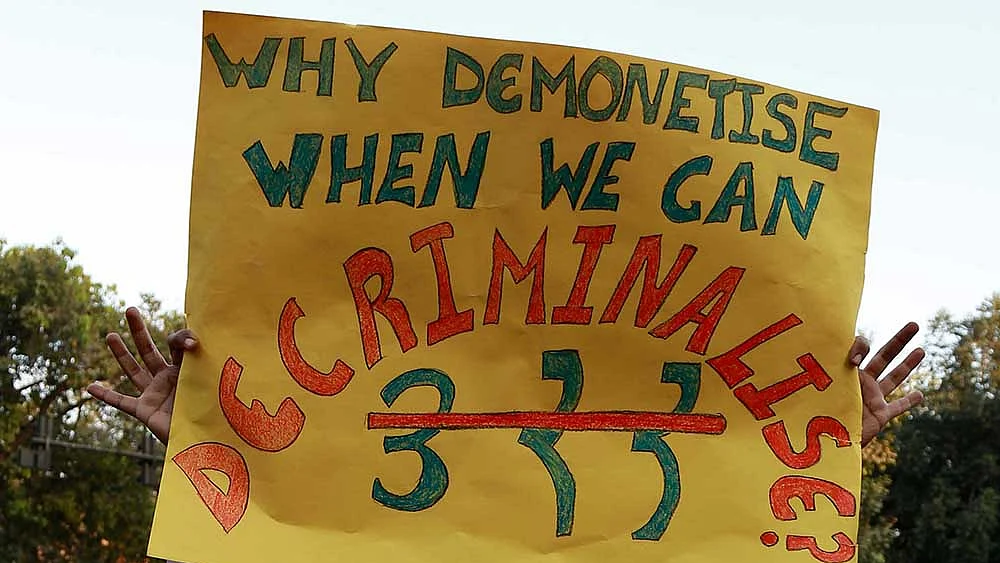 WHY DEMONETISE
WHEN WE CAN
DECRIMINALISE?
377